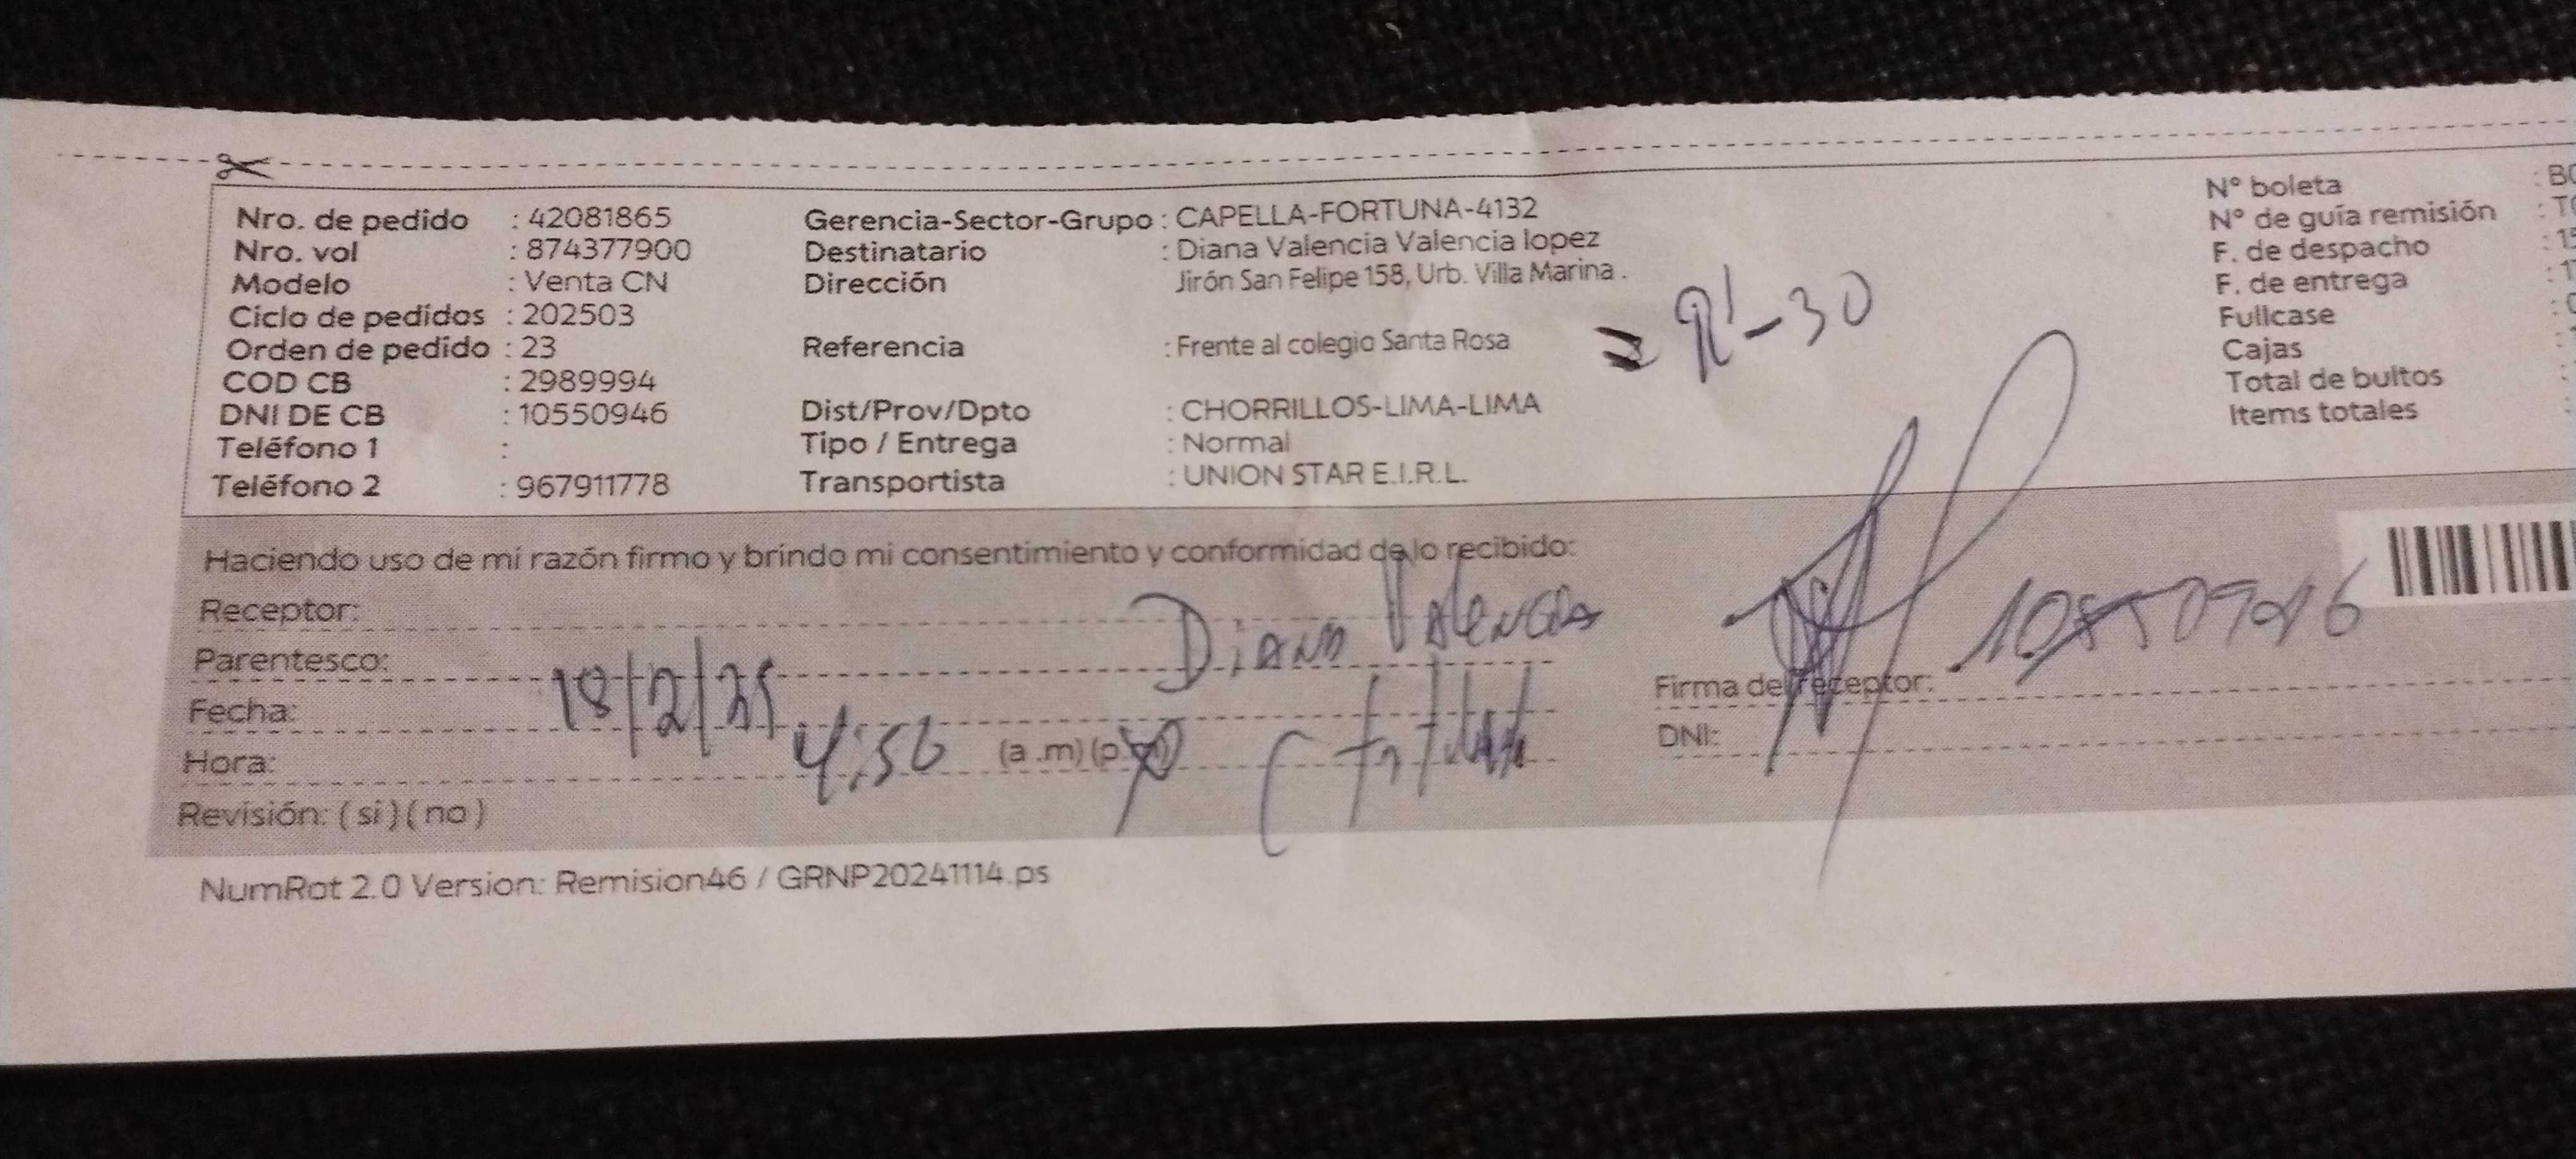 Nro. de pedido : 42081865
Nro. vol : 874377900
Modelo : Venta CN
Ciclo de pedidos : 202503
Orden de pedido : 23
COD CB : 2989994
DNI DE CB : 10550946
Teléfono 1 :
Teléfono 2 : 967911778
Gerencia-Sector-Grupo : CAPELLA-FORTUNA-4132
Destinatario : Diana Valencia Valencia lopez
Dirección Jirón San Felipe 158, Urb. Villa Marina .
Referencia : Frente al colegio Santa Rosa
Dist/Prov/Dpto : CHORRILLOS-LIMA-LIMA
Tipo / Entrega : Normal
Transportista : UNION STAR E.I.R.L.
N° boleta
N° de guía remisión
F. de despacho
F. de entrega
Fullcase
Cajas
Total de bultos
Items totales
Haciendo uso de mi razón firmo y brindo mi consentimiento y conformidad de lo recibido:
Receptor: Diana Valencia
Parentesco:
Fecha: 18/2/25
Hora: 4:50 (a .m) (p
Revisión: ( si ) ( no )
Firma del receptor:
DNI: 10550946
NumRot 2.0 Version: Remision46 / GRNP20241114.ps